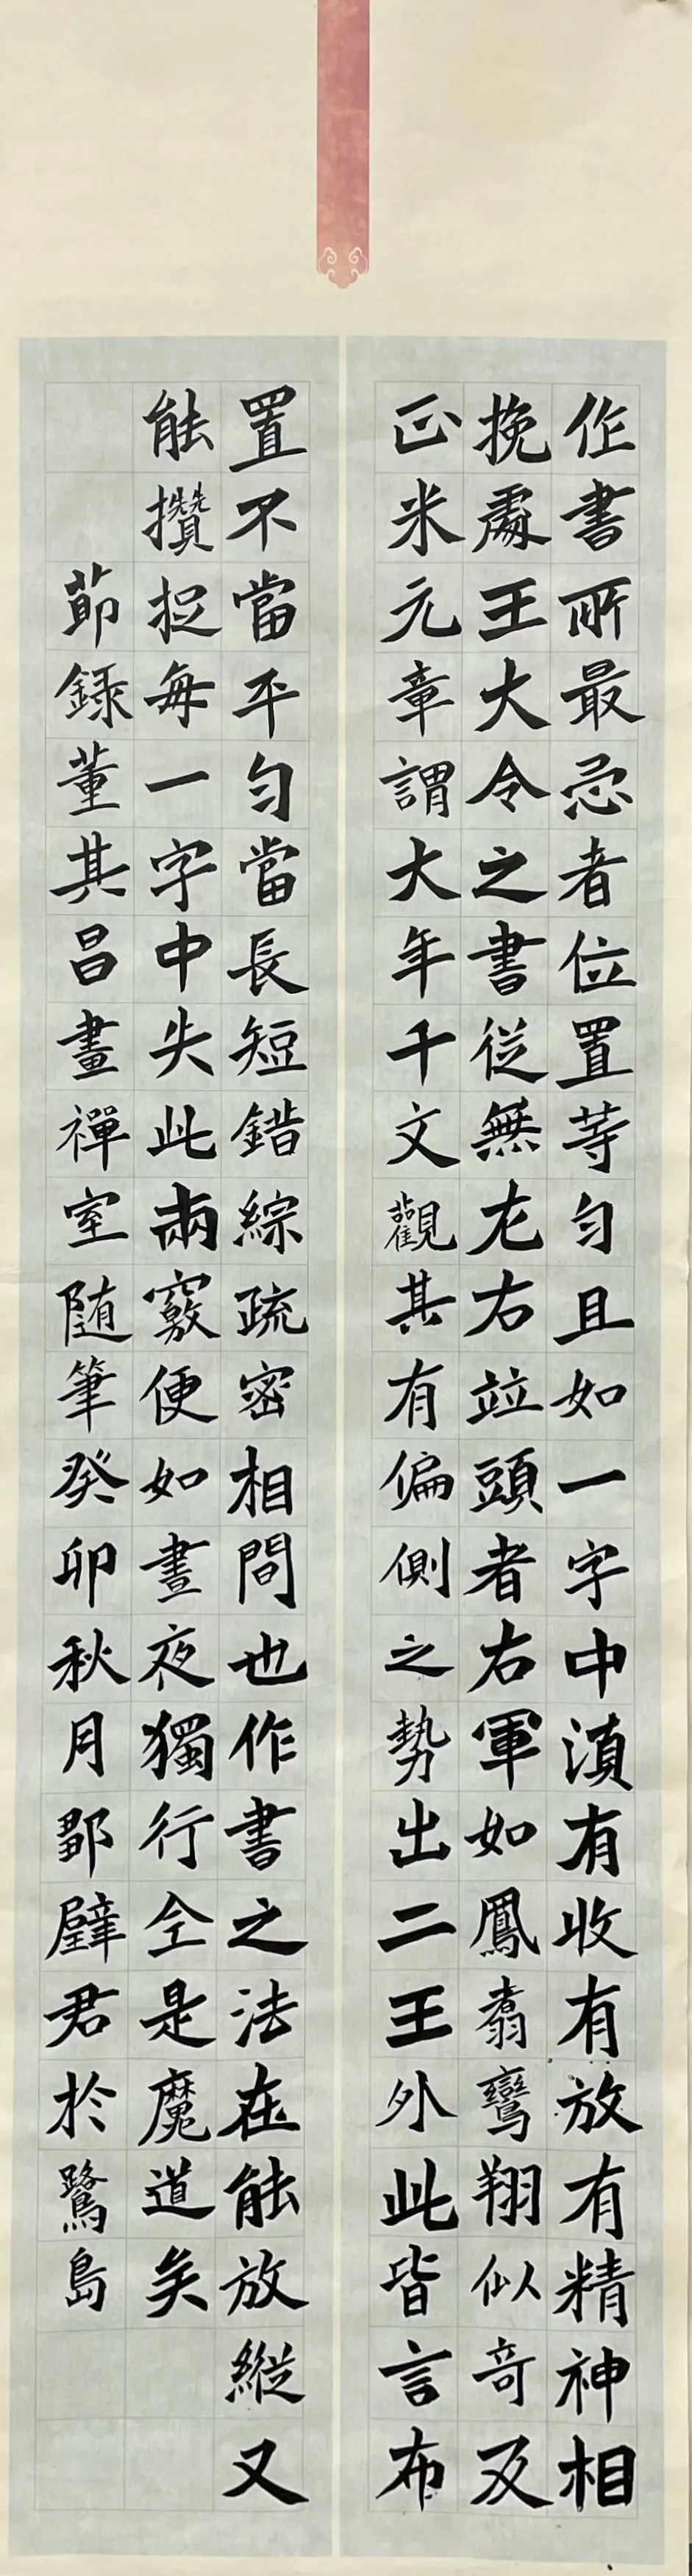 作書所最忌者位置等勻且如一字中湏有收有放有精神相
挽處王大令之書從無左右竝頭者右軍如鳳翥鸞翔似竒及
正米元章謂大年千文觀其有偏側之勢出二王外此皆言布
置不當平勻當長短錯綜疏密相間也作書之法在能放縱又
能攢捉每一字中失此兩竅便如晝夜獨行仝是魔道矣
節録董其昌畫禪室随筆癸卯秋月鄒璧君於鷺島